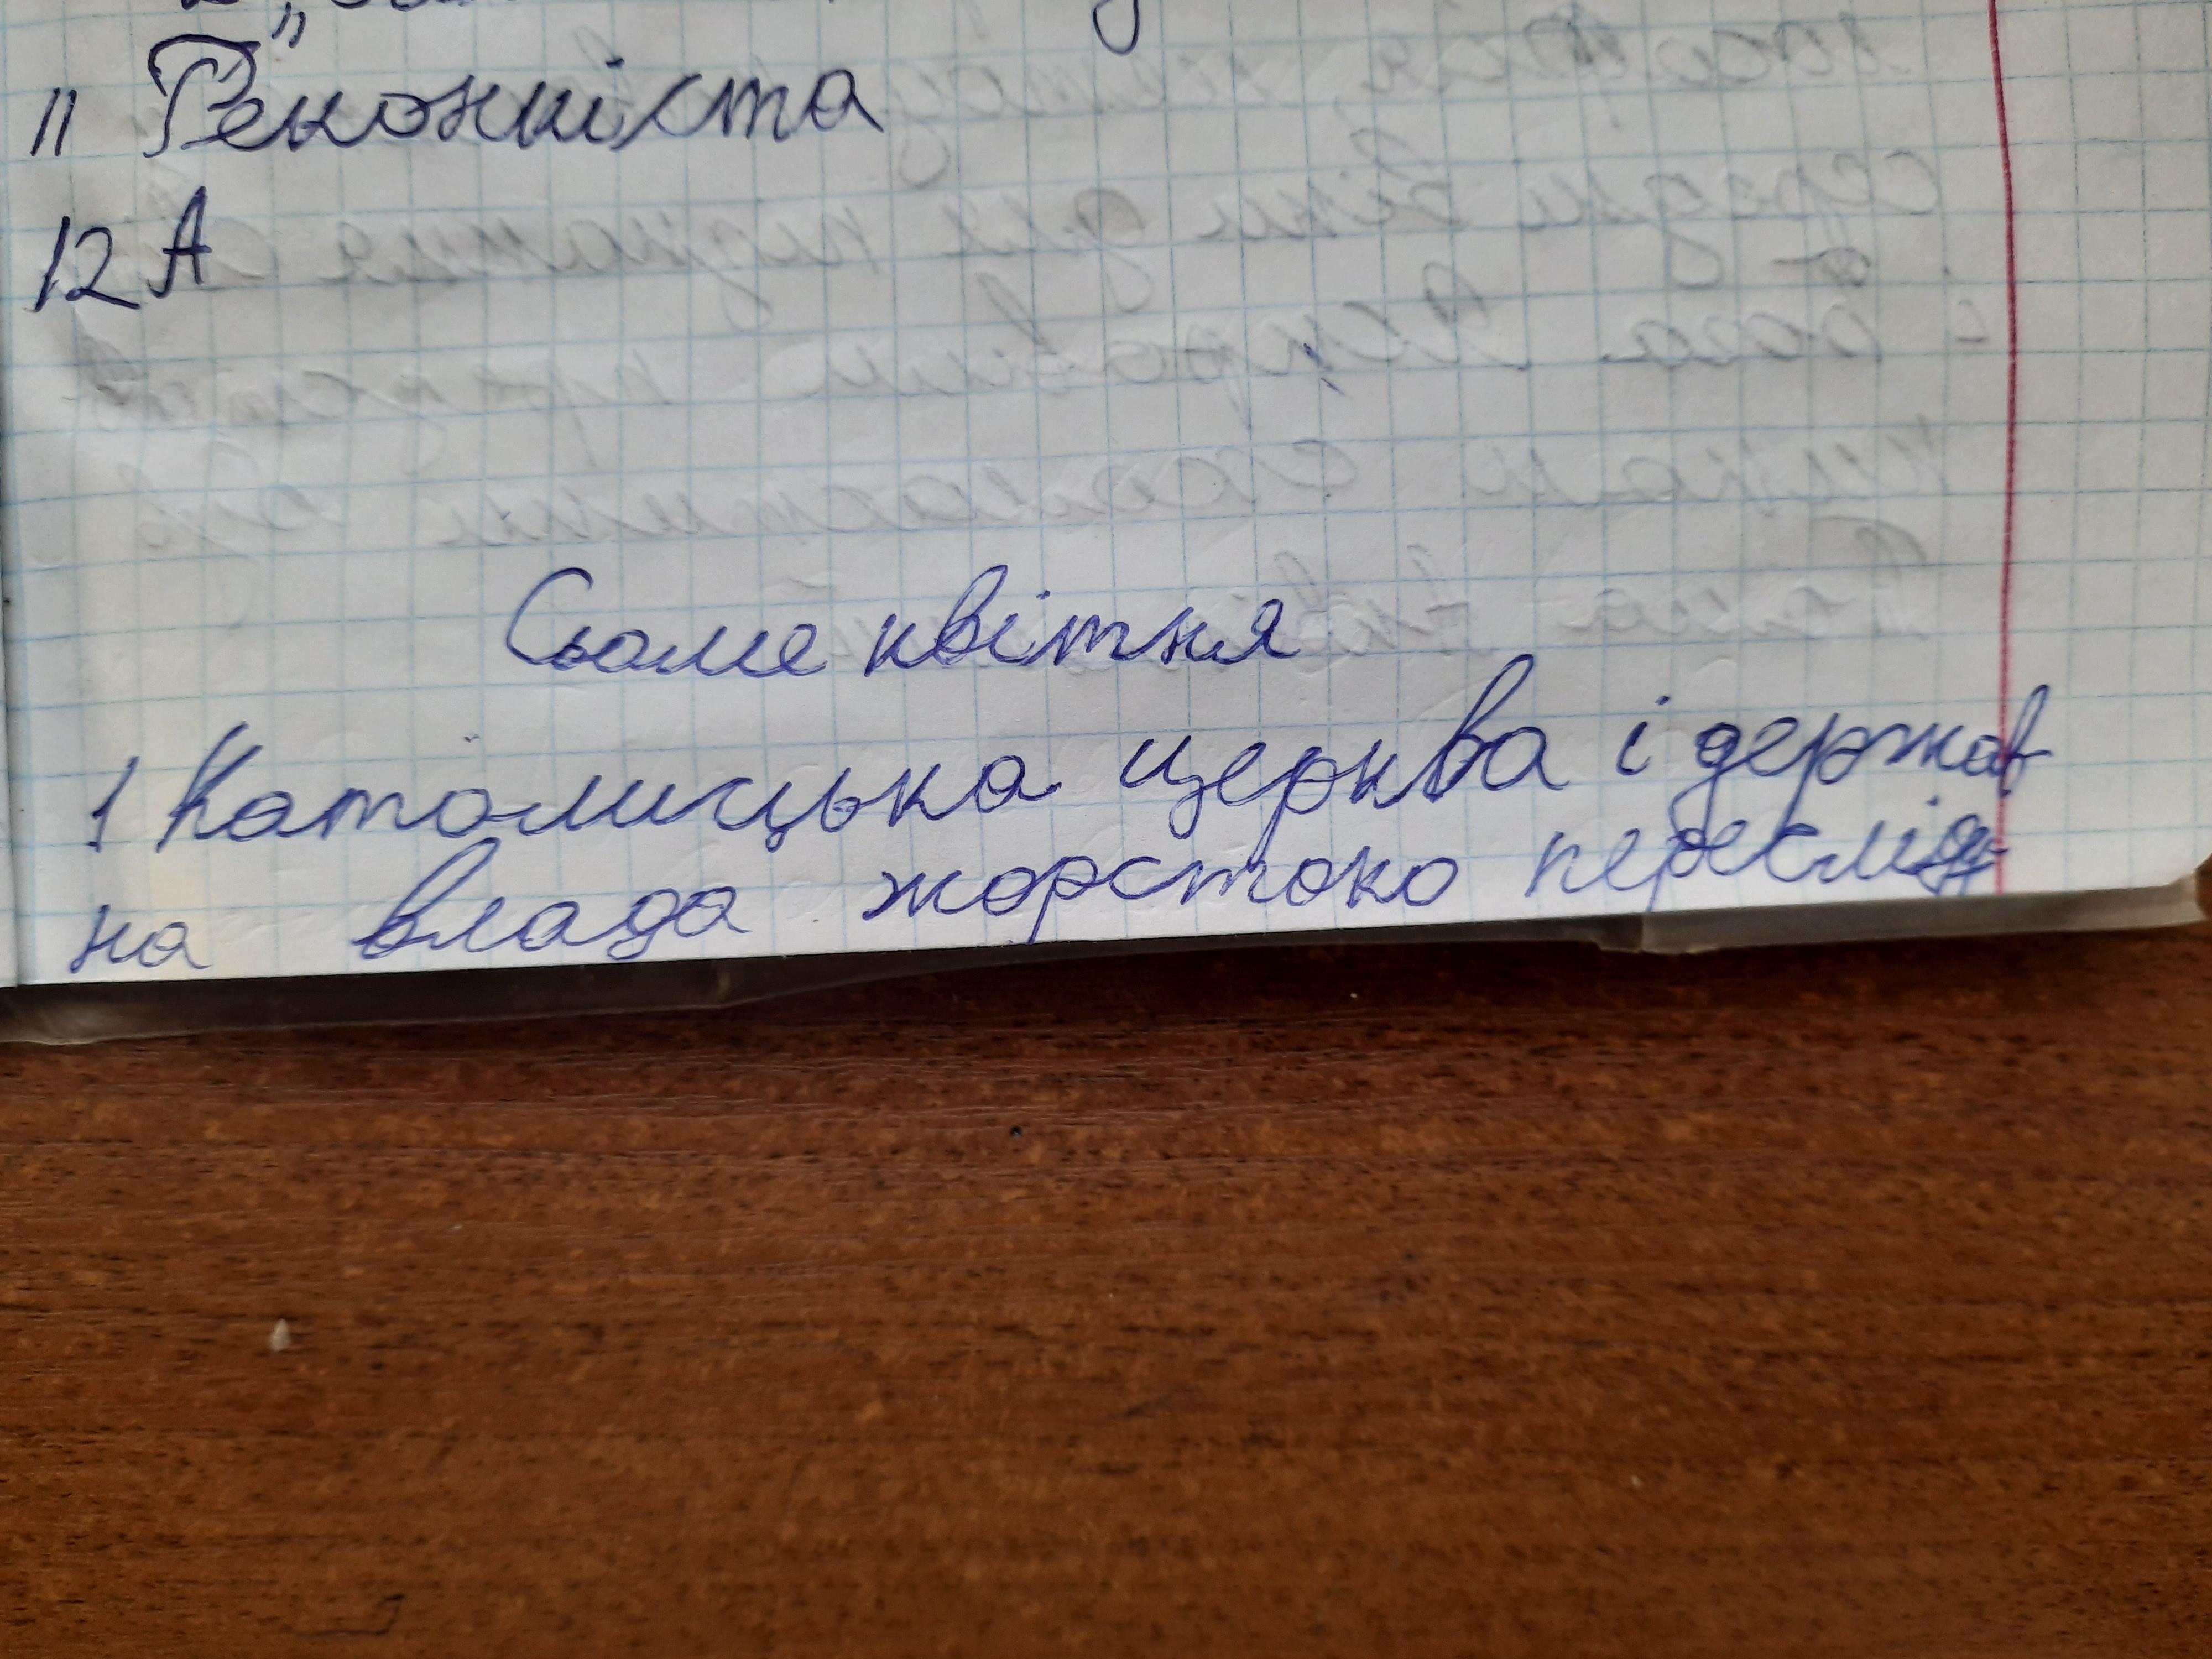 11 Реконкіста
12 А
Сьоме квітня
1 Католицька церква і держав
на влада жорстоко переслід